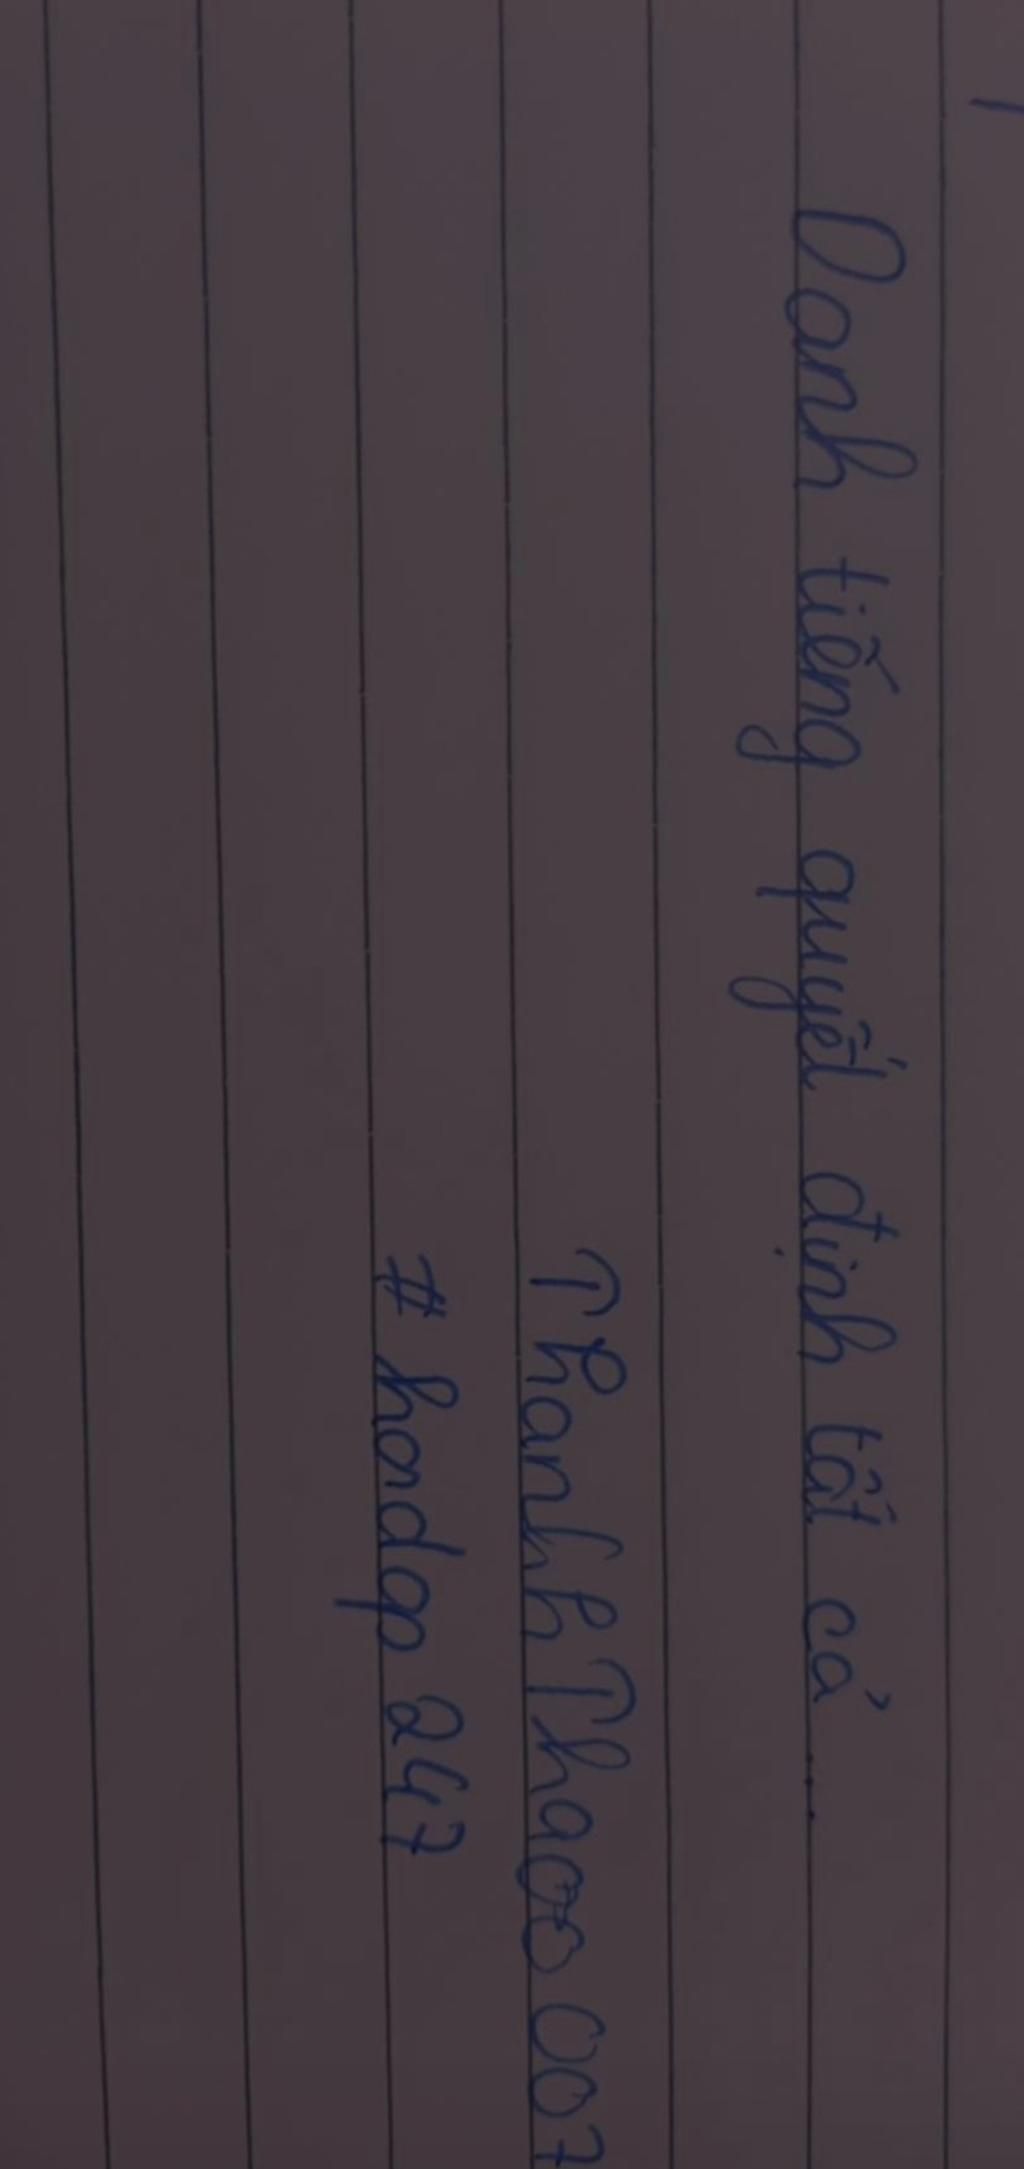 Danh tiếng quyết định tất cả ...
ThanhThaooo007
# hoidap 247